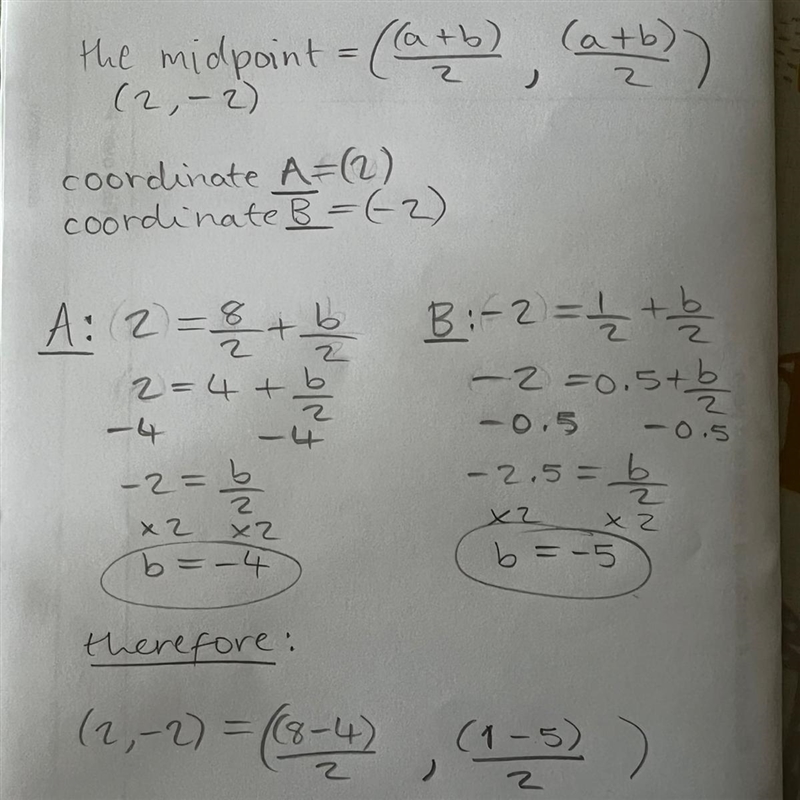 the midpoint = ((a+b)/2 , (a+b)/2)
(2,-2)
coordinate A=(2)
coordinate B=(-2)
A: (2) = 8/2 + b/2
2 = 4 + b/2
-4 -4
-2 = b/2
×2 ×2
b = -4
B: (-2) = 1/2 + b/2
-2 = 0.5 + b/2
-0.5 -0.5
-2.5 = b/2
×2 ×2
b = -5
therefore:
(2,-2) = ((8-4)/2 , (1-5)/2)